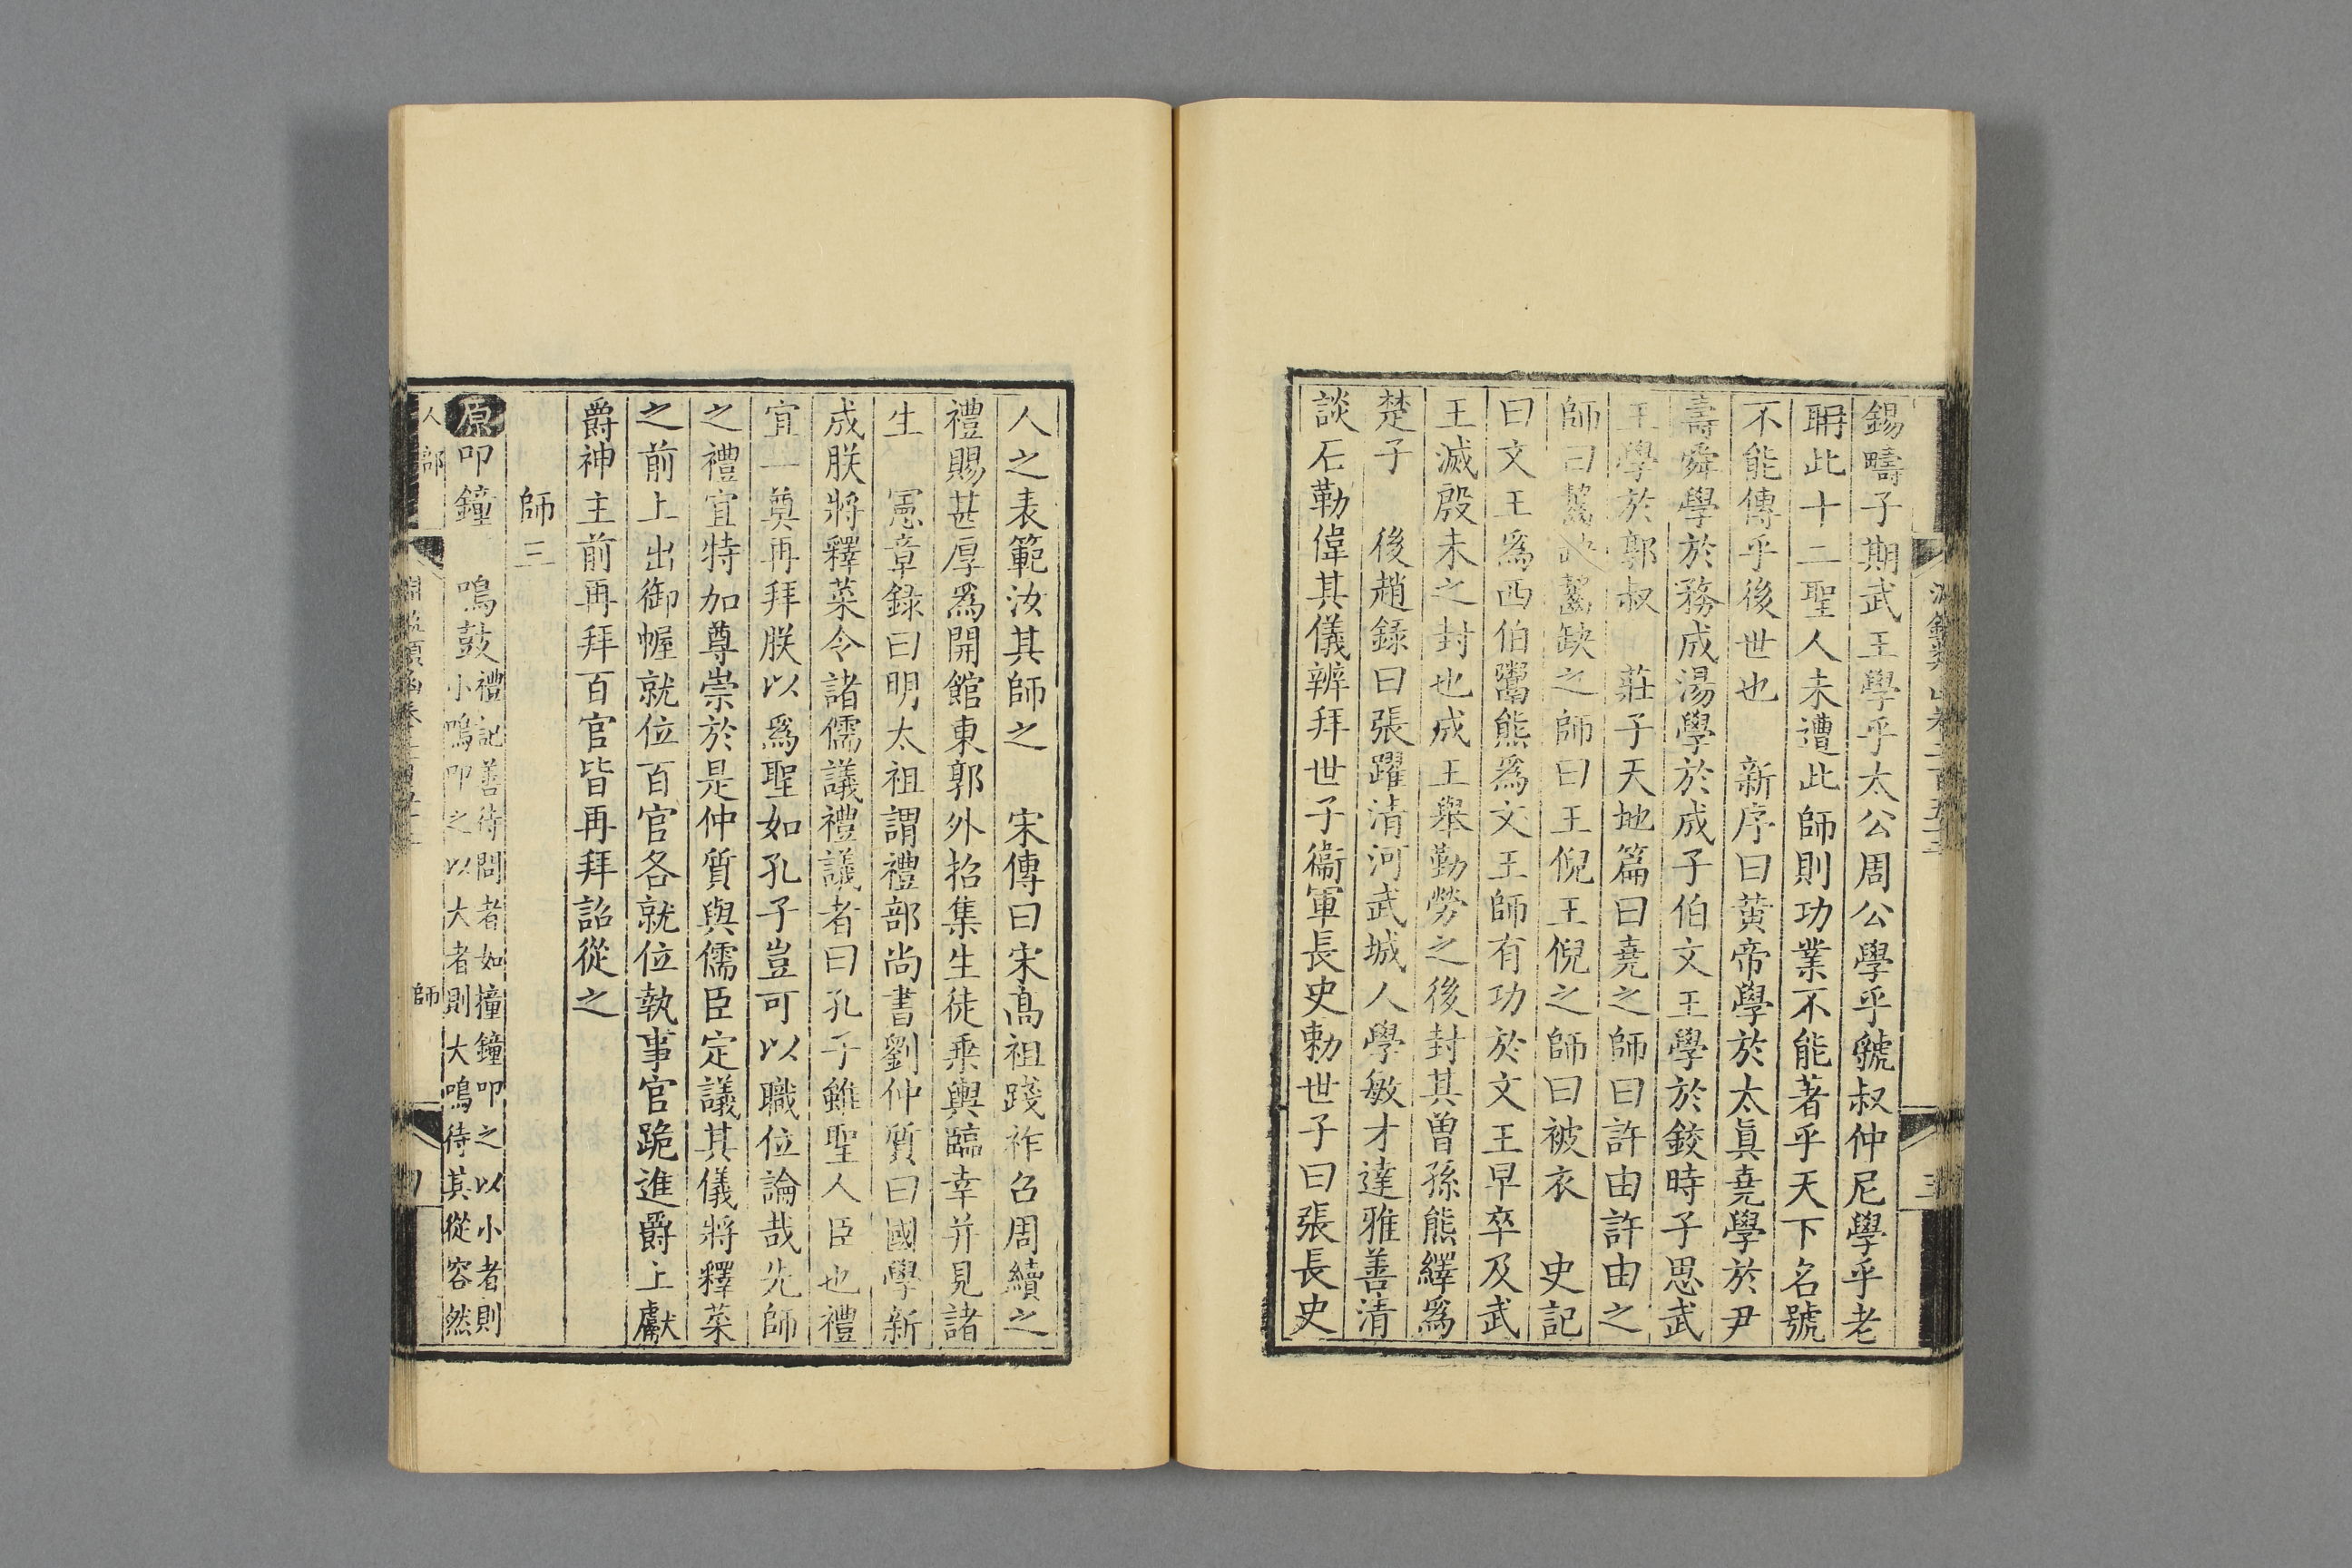 錫疇子期武王學乎太公周公學乎虢叔仲尼學乎老
聃此十二聖人未遭此師則功業不能著乎天下名號
不能傳乎後世也　新序曰黃帝學於太真堯學於尹
壽舜學於務成湯學於成子伯文王學於鉸時子思武
王學於郭叔　莊子天地篇曰堯之師曰許由許由之
師曰齧缺齧缺之師曰王倪王倪之師曰被衣　史記
曰文王為西伯鬻熊為文王師有功於文王早卒及武
王滅殷未之封也成王舉勤勞之後封其曾孫熊繹為
楚子　後趙錄曰張躍清河武城人學敏才達雅善清
談石勒偉其儀辨拜世子衞軍長史勅世子曰張長史
人之表範汝其師之　宋傳曰宋高祖踐祚召周續之
禮賜甚厚為開館東郭外招集生徒乘輿臨幸并見諸
生　憲章錄曰明太祖謂禮部尚書劉仲質曰國學新
成朕將釋菜令諸儒議禮議者曰孔子雖聖人臣也禮
宜一奠再拜朕以為聖如孔子豈可以職位論哉先師
之禮宜特加尊崇於是仲質與儒臣定議其儀將釋菜
之前上出御幄就位百官各就位執事官跪進爵上獻
爵神主前再拜百官皆再拜詔從之
師三
原叩鐘　鳴鼓禮記善待問者如撞鐘叩之以小者則
小鳴叩之以大者則大鳴待其從容然
人部　師